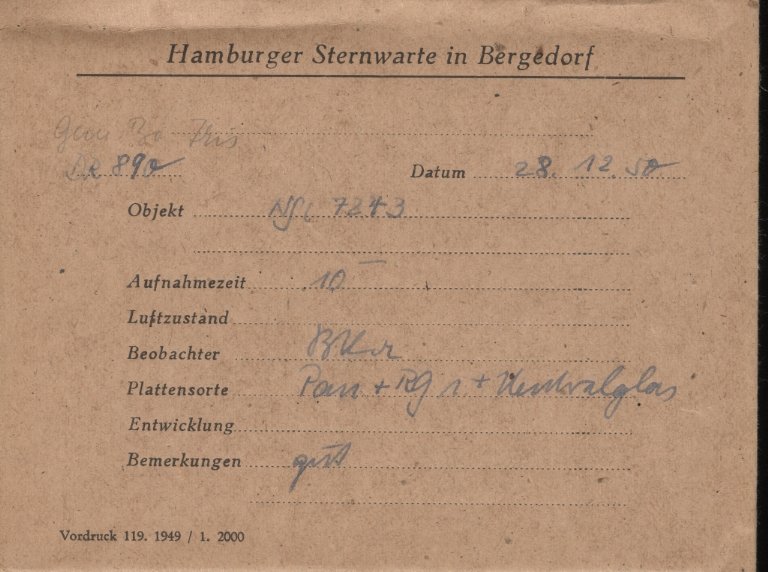 Hamburger Sternwarte in Bergedorf
DR 890 Datum 28. 12. 50
Objekt NGC 7243
Aufnahmezeit 10
Luftzustand
Beobachter
Plattensorte Pan + RG 1 + Neutralglas
Entwicklung
Bemerkungen gut
Vordruck 119. 1949 / 1. 2000